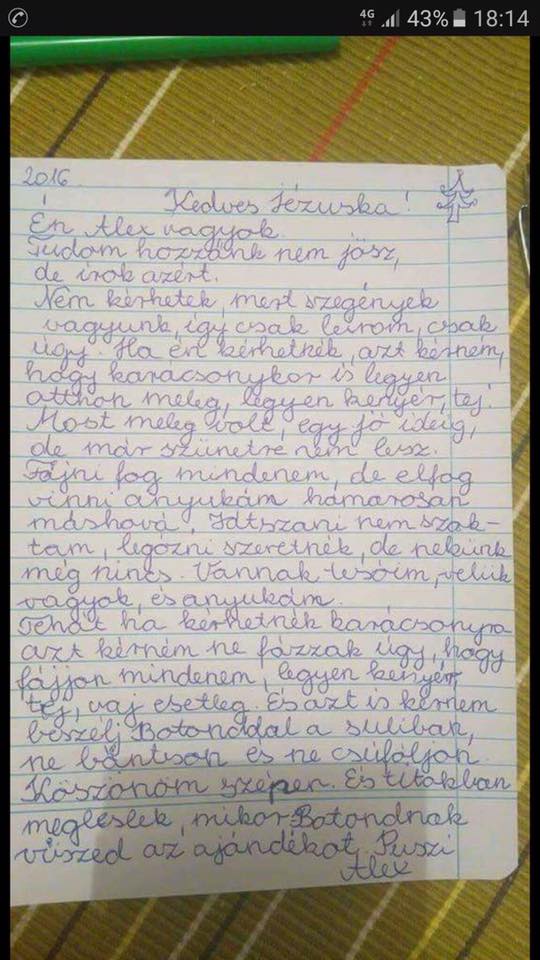 4G 43% 18:14
2016
Kedves Jézuska!
Én Alex vagyok.
Tudom hozzánk nem jösz,
de irok azért.
Nem kérhetek, mert szegények
vagyunk, így csak leirom, csak
úgy. Ha én kérhetnék, azt kérném,
hogy karácsonykor is legyen
otthon meleg, legyen kenyér, tej.
Most meleg volt, egy jó ideig,
de már szünetre nem lesz.
Fájni fog mindenem, de elfog
vinni anyukám hamarosan
máshová. Játszani nem szok-
tam, legózni szeretnék, de nekünk
még nincs. Vannak tesóim, velük
vagyok, és anyukám.
Tehát ha kérhetnék karácsonyra
azt kérném ne fázzak úgy, hogy
fájjon mindenem, legyen kenyér,
tej, vaj esetleg. És azt is kérném
beszélj Botonddal a suliban,
ne bántson és ne csúfoljon.
Köszönöm szépen. És titokban
megleslek, mikor Botondnak
viszed az ajándékot. Puszi
Alex